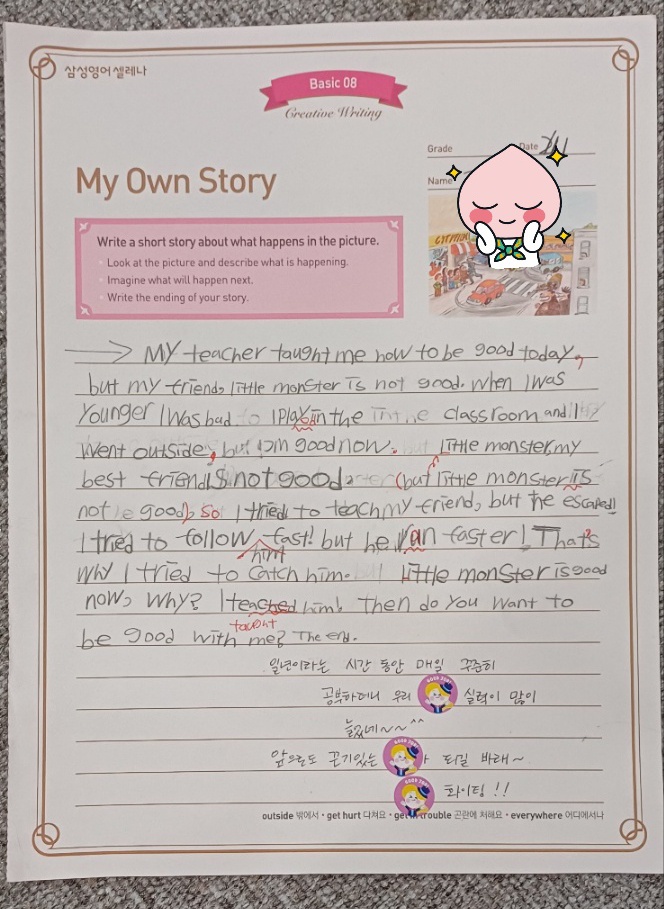 삼성영어 셀레나
Basic 08
Creative Writing
Grade
Date
Name
My Own Story
Write a short story about what happens in the picture.
· Look at the picture and describe what is happening.
· Imagine what will happen next.
· Write the ending of your story.
My teacher taught me how to be good today,
but my friend, little monster is not good. When I was
younger I was bad I play in the classroom and I
went outside, but I'm good now. little monster, my
best friend is not good. (but little monster is
not good). so I tried to teach my friend, but he escaped!
I tried to follow him fast! but he ran faster! That's
why I tried to catch him. little monster is good
now, why? I teached him! Then do you want to
taught
be good with me? The end.
일년이라는 시간 동안 매일 꾸준히
공부하더니 우리 실력이 많이
늘었네~~^^
앞으로도 끈기있는 되길 바래~
화이팅!!
outside 밖에서 · get hurt 다쳐요 · get in trouble 곤란에 처해요 · everywhere 어디에서나